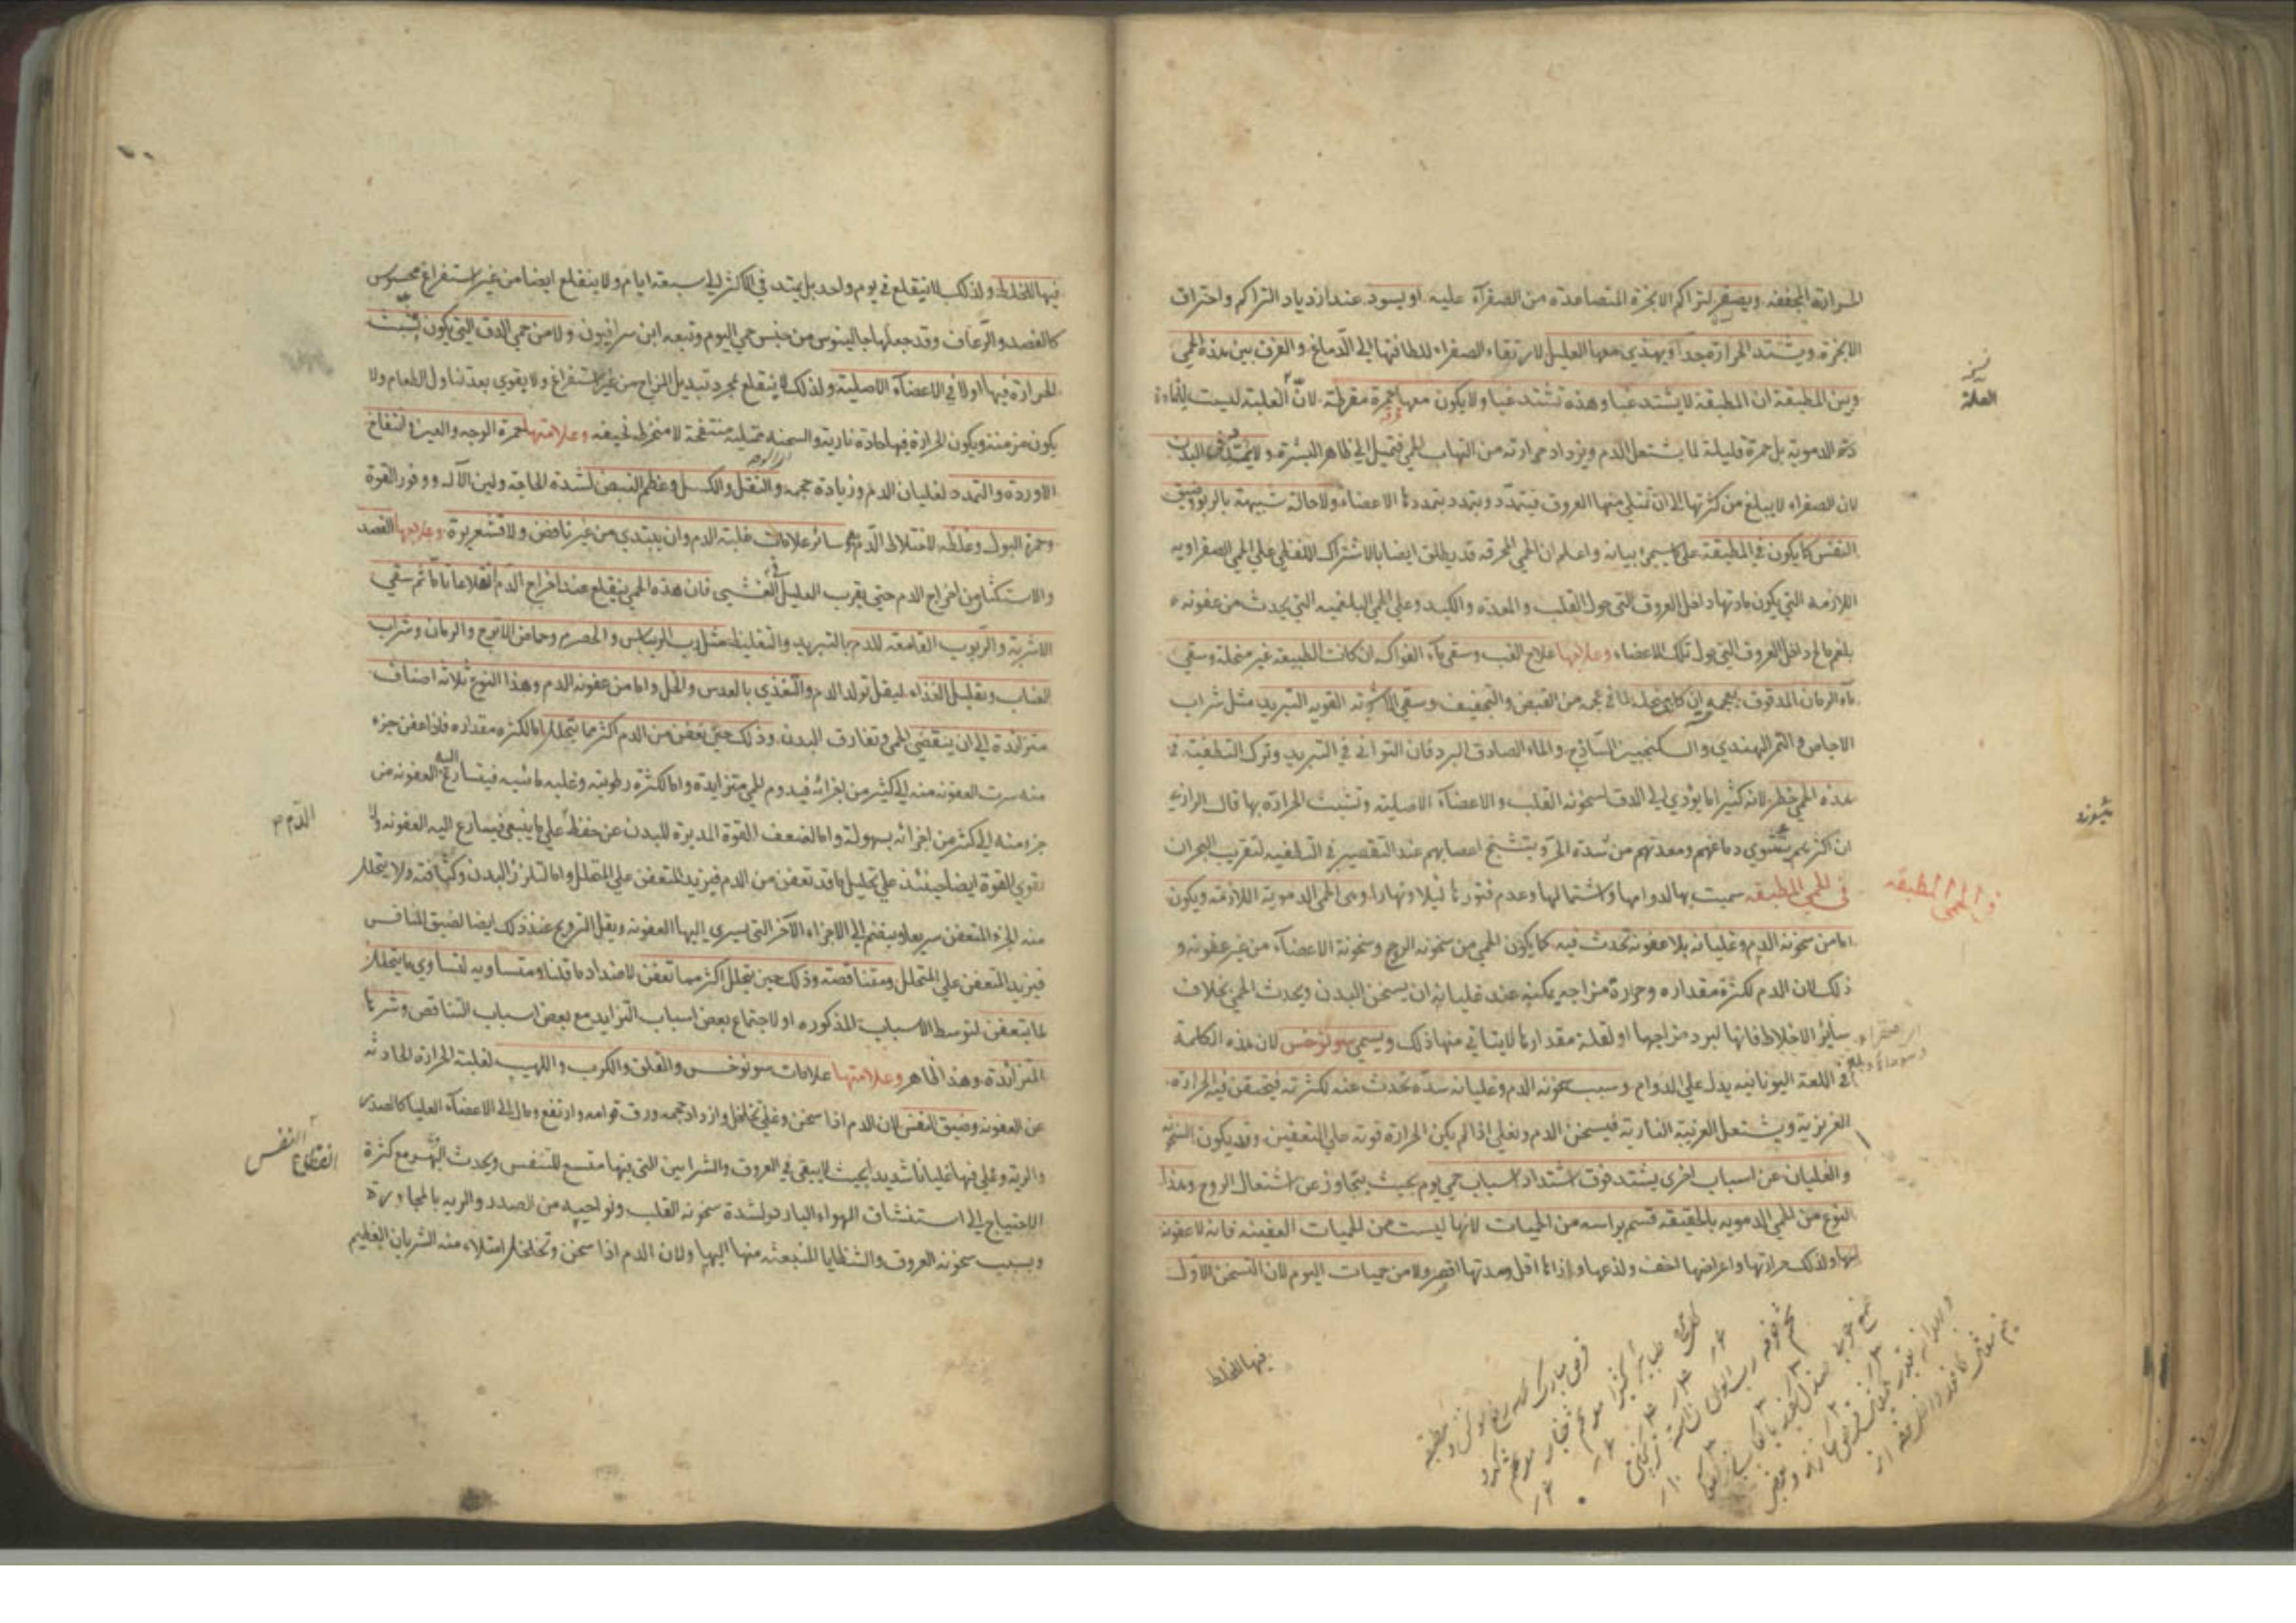 الحرارة المجففة ويصفر لتراكم الابخرة المتصاعدة من الصفرآء عليه او يسود عند ازدياد التراكم واحتراق
الابخرة ويشتد الحرارة جدا ويهذي معها العليل لارتقاء الصفراء للطافتها الى الدماغ والفرق بين هذه الحمى
وبين المطبقة ان المطبقة لا يشتد غبا وهذه تشتد غبا ولا يكون معها حمرة مفرطة لان العلة ليست
الدموية بل حمرة قليلة لما يشتعل الدم ويزداد حرارته من التهاب الحمى فتميل الى ظاهر البشرة ولا تمدد في البدن
لان الصفراء لا يبلغ من كثرتها الى ان تمتلي منها العروق فيتمدد ويتمدد بتمددها الاعضاء ولا حالة شبيهة بالربو وضيق
النفس كما يكون في المطبقة على ما سيجئ بيانه واعلم ان الحمى المحرقة قد يطلق ايضا بالاشتراك اللفظي على الحمى الصفراويه
اللازمة التي يكون مادتها داخل العروق التي حول القلب والمعدة والكبد وعلى الحمى البلغميه التي يحدث من عفونة
بلغم مالح داخل العروق التي حول تلك الاعضاء وعلاجها علاج الغب وسقي مآء الفواكه ان كانت الطبيعة غير منحلة وسقي
مآء الرمان المدقوق بعجمه ان كانت منحلة لما في عجمه من القبض والتجفيف وسقي الاشربة القوية التبريد مثل شراب
الاجاص والتمر الهندي والسكنجبين الساذج والماء الصادق البرد فان التواني في التبريد وترك التطفية في
هذه الحمى خطر لانه كثيرا ما يؤدي الى الدق لسخونة القلب والاعضآء الاصلية وتشبث الحرارة بها قال الرازي
ان اكثرهم يشتوي دماغهم ومعدتهم من شدة الحر ويتشنج اعصابهم عند التقصير في التطفية لتقريب البحران
في الحمى المطبقه سميت بها لدوامها واشتمالها وعدم فتورها ليلا ونهارا وهي الحمى الدموية اللازمة ويكون
اما من سخونة الدم وغليانه بلا عفونة تحدث فيه كما يكون الحمى من سخونة الروح وسخونة الاعضآء من غير عفونة و
ذلك لان الدم لكثرة مقداره وحرارة مزاجه يمكنه عند غليانه ان يسخن البدن ويحدث الحمى بخلاف
سائر الاخلاط فانها لبرد مزاجها او لقلة مقدارها لا يتاتي منها ذلك ويسمى سونوخس لان هذه الكلمة
في اللغة اليونانيه يدل على الدوام وسبب سخونة الدم وغليانه سدة تحدث عنه لكثرته فيحتقن فيه الحرارة
الغريزية ويشتعل الغريبة النارية فيسخن الدم ويغلي اذا لم يكن الحرارة قوية على التعفين وقد يكون السخونة
والغليان عن اسباب اخرى يشتد فوق اشتداد اسباب حمى يوم بحيث يتجاوز عن اشتعال الروح وهذا
النوع من الحمى الدموية بالحقيقة قسم براسه من الحميات لانها ليست من الحميات العفينه فانه لا عفونة
فيها ولذلك حرارتها واعراضها اخف ولذعها واذاها اقل ومدتها اقصر ولا من حميات اليوم لان التسخن الاول
فيها للخلط
في الحمى المطبقه
العلة
فيها للخلط ولذلك لا ينقلع في يوم واحد بل يمتد في الاكثر الى سبعة ايام ولا ينقلع ايضا من غير استفراغ محسوس
كالفصد والرعاف وقد جعلها جالينوس من جنس حمى اليوم وتبعه ابن سرافيون ولا من حمى الدق التي يكون تشبث
الحرارة فيها اولا في الاعضآء الاصلية ولذلك لا ينقلع بمجرد تبديل المزاج من غير استفراغ ولا يقوي بعد تناول الطعام ولا
يكون مزمنة ويكون الحرارة فيها حادة نارية والسحنة ممتلية منتفخة لا منخرطة نحيفه وعلامتها حمرة الوجه والعين وانتفاخ
الاوردة والتمدد لغليان الدم وزيادة حجمه والثقل والكسل وعظم النبض لشدة الحاجة ولين الآلة ووفور القوة
وحمرة البول وغلظه لاختلاط الدم به وسائر علامات غلبة الدم وان يبتدي من غير نافض ولا قشعريرة وعلاجها الفصد
والاستكثار من اخراج الدم حتى يقرب العليل من الغشي فان هذه الحمى ينقلع عند اخراج الدم انقلاعا تاما ثم سقي
الاشربة والربوب القامعة للدم بالتبريد والتغليظ مثل رب الريباس والحصرم وحماض الاترج والرمان وشراب
العناب وتقليل الغذاء ليقل تولد الدم والتغذي بالعدس والخل واما من عفونة الدم وهذا النوع ثلاثة اصناف
متزائدة الى ان ينقضي الحمى وتفارق البدن وذلك حين تعفن من الدم اكثر مما يتحلل اما لكثرة مقداره فاذا عفن جزء
منه سرت العفونة منه الى كثير من اجزائه فيدوم الحمى متزايدة واما لكثرة رطوبته وغلبة مائيته فيتسارع العفونة من
جزء منه الى كثير من اجزائه بسهولة واما لضعف القوة المدبرة للبدن عن حفظه على ما ينبغي فيسارع اليه العفونة ولا
تقوي القوة ايضا حينئذ على تحليل ما قد تعفن من الدم فيزيد المتعفن على المتحلل واما لتلزز البدن وكثافته ولا يتحلل
منه الجزء المتعفن سريعا وينضم الى الاجزاء الآخر التي يسري اليها العفونة ويقل الترويح عند ذلك ايضا لضيق المنافس
فيزيد المتعفن على المتحلل ومتناقصة وذلك حين يتحلل اكثر مما تعفن لاضداد ما قلنا ومتساويه لتساوي ما يتحلل
لما يتعفن لتوسط الاسباب المذكوره او لاجتماع بعض اسباب التزايد مع بعض اسباب التناقص وشرها
المتزائدة وهذا ظاهر وعلامتها علامات سونوخس والقلق والكرب واللهيب لغلبة الحرارة الحادثة
عن العفونة وضيق النفس لان الدم اذا سخن وغلى تخلخل وازداد حجمه ورق قوامه وارتفع ومال الى الاعضآء العليا كالصدر
والرية وغلى فيها غليانا شديدا بحيث لا يبقى في العروق والشرايين التي فيها متسع للتنفس ويحدث البهر مع كثرة
الاحتياج الى استنشاق الهواء البارد لشدة سخونة القلب ونواحيه من الصدر والريه بالمجاورة
وبسبب سخونة العروق والشظايا المنبعثة منها اليها ولان الدم اذا سخن وتخلخل امتلاء منه الشريان العظيم
الدم
النفس